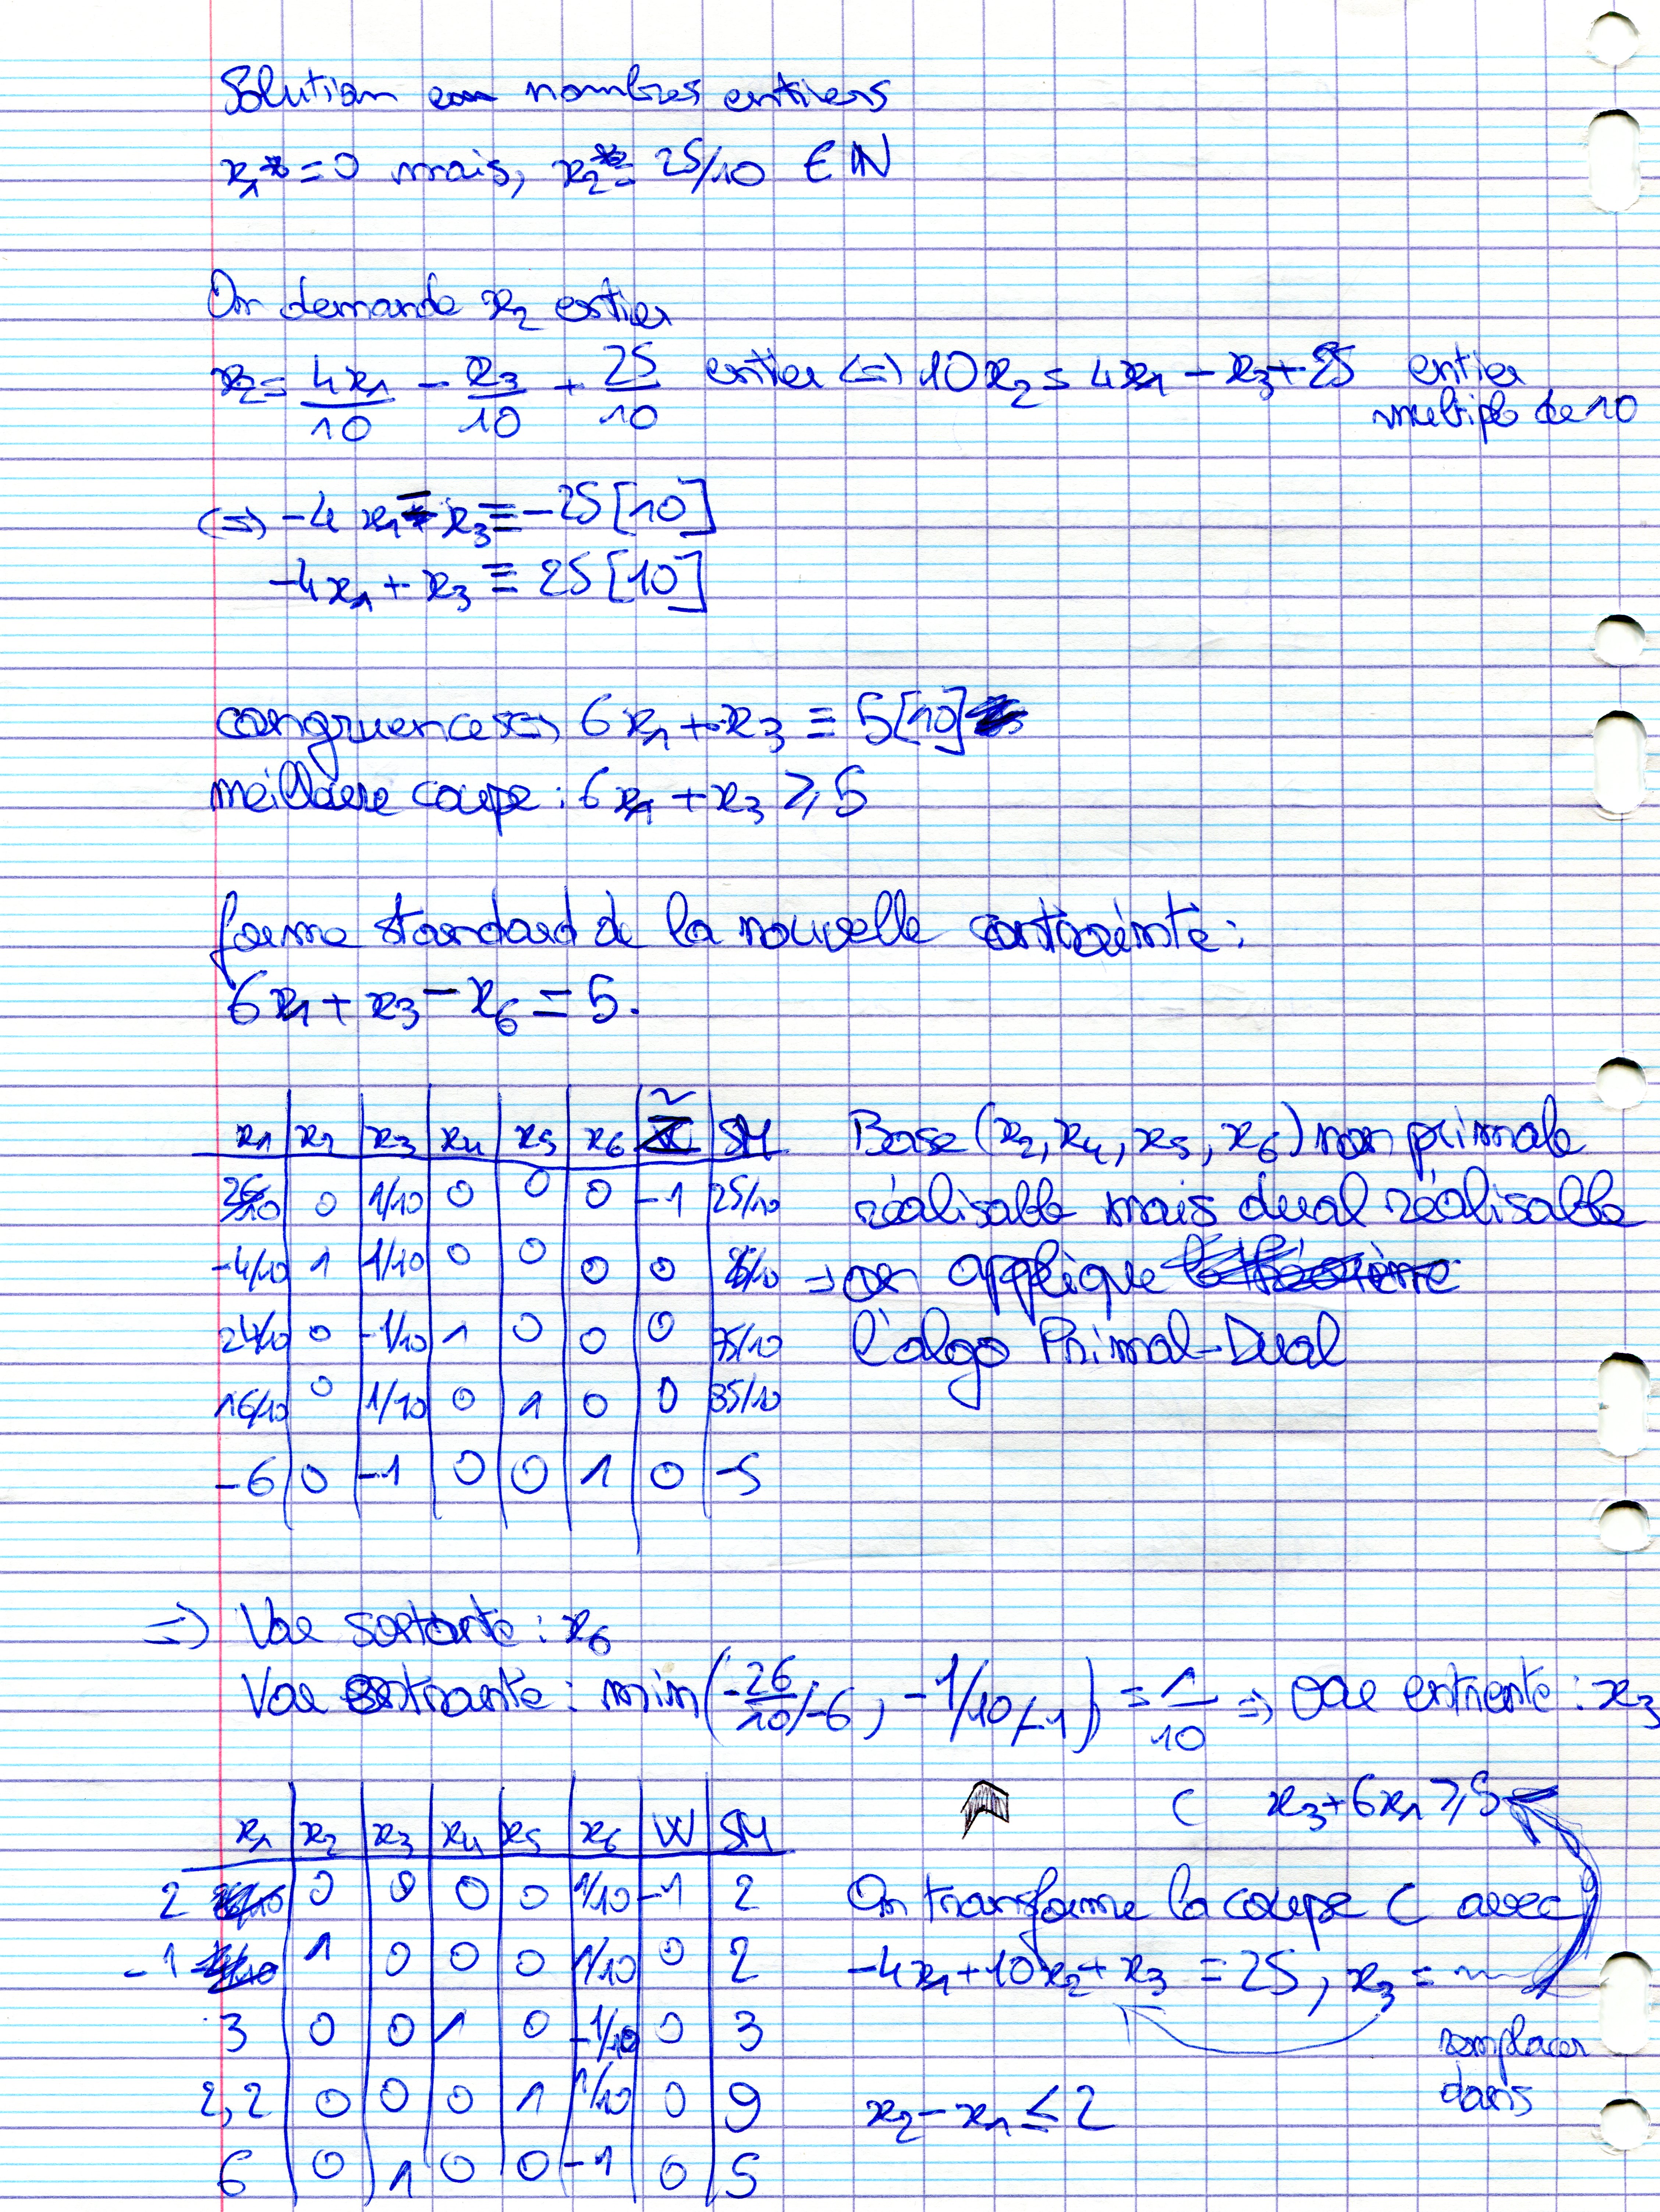 Solution en nombres entiers
x₁* = 0 mais, x₂* = 25/10 ∈ IN
On demande x₂ entier
x₂ = 4x₁/10 - x₃/10 + 25/10 entier (=) 10x₂ = 4x₁ - x₃ + 25 entier
multiple de 10
(=) -4x₁ - x₃ ≡ -25 [10]
-4x₁ + x₃ ≡ 25 [10]
congruences (=) 6x₁ + x₃ ≡ 5 [10]
meilleure coupe : 6x₁ + x₃ ⩾ 5
forme standard de la nouvelle contrainte :
6x₁ + x₃ - x₆ = 5.
x₁ | x₂ | x₃ | x₄ | x₅ | x₆ | Z̃ | SM
26/10 | 0 | 1/10 | 0 | 0 | 0 | -1 | 25/10
-4/10 | 1 | 1/10 | 0 | 0 | 0 | 0 | 25/10
24/10 | 0 | -1/10 | 1 | 0 | 0 | 0 | 35/10
16/10 | 0 | 1/10 | 0 | 1 | 0 | 0 | 95/10
-6 | 0 | -1 | 0 | 0 | 1 | 0 | -5
Base (x₂, x₄, x₅, x₆) non primale
réalisable mais dual réalisable
=> on applique
l'algo Primal-Dual
=) Var sortante : x₆
Var entrante : min(-26/10/-6, -1/10/-1) = 1/10 => Var entrente : x₃
x₁ | x₂ | x₃ | x₄ | x₅ | x₆ | W | SM
2 | 0 | 0 | 0 | 0 | 1/10 | -1 | 2
-1 | 1 | 0 | 0 | 0 | 1/10 | 0 | 2
3 | 0 | 0 | 1 | 0 | -1/10 | 0 | 3
2,2 | 0 | 0 | 0 | 1 | 1/10 | 0 | 9
6 | 0 | 1 | 0 | 0 | -1 | 0 | 5
C x₃ + 6x₁ ⩾ 5
On transforme la coupe C avec
-4x₁ + 10x₂ + x₃ = 25, x₃ =
remplacer
dans
x₂ - x₁ ≤ 2